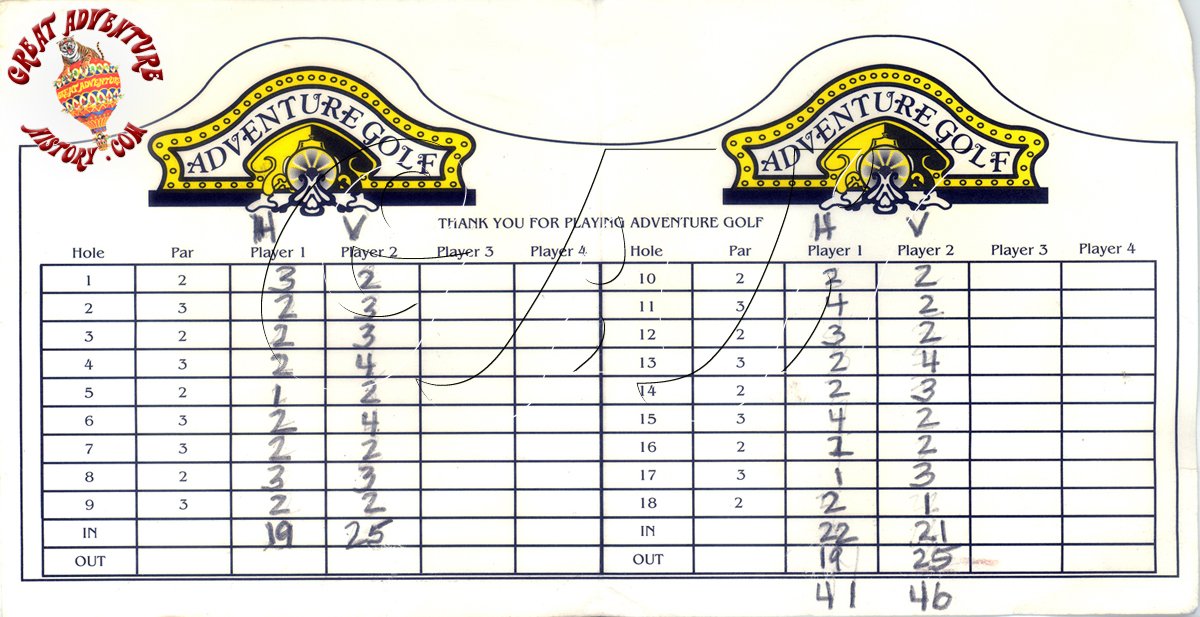 GREAT ADVENTURE
GREAT ADVENTURE
HISTORY.COM
ADVENTURE GOLF ADVENTURE GOLF
THANK YOU FOR PLAYING ADVENTURE GOLF
H V H V
Hole Par Player 1 Player 2 Player 3 Player 4 Hole Par Player 1 Player 2 Player 3 Player 4
1 2 3 2 10 2 2 2
2 3 2 3 11 3 4 2
3 2 2 3 12 2 3 2
4 3 2 4 13 3 2 4
5 2 1 2 14 2 2 3
6 3 2 4 15 3 4 2
7 3 2 2 16 2 2 2
8 2 3 3 17 3 1 3
9 3 2 2 18 2 2 1
IN 19 25 IN 22 21
OUT OUT 19 25
41 46